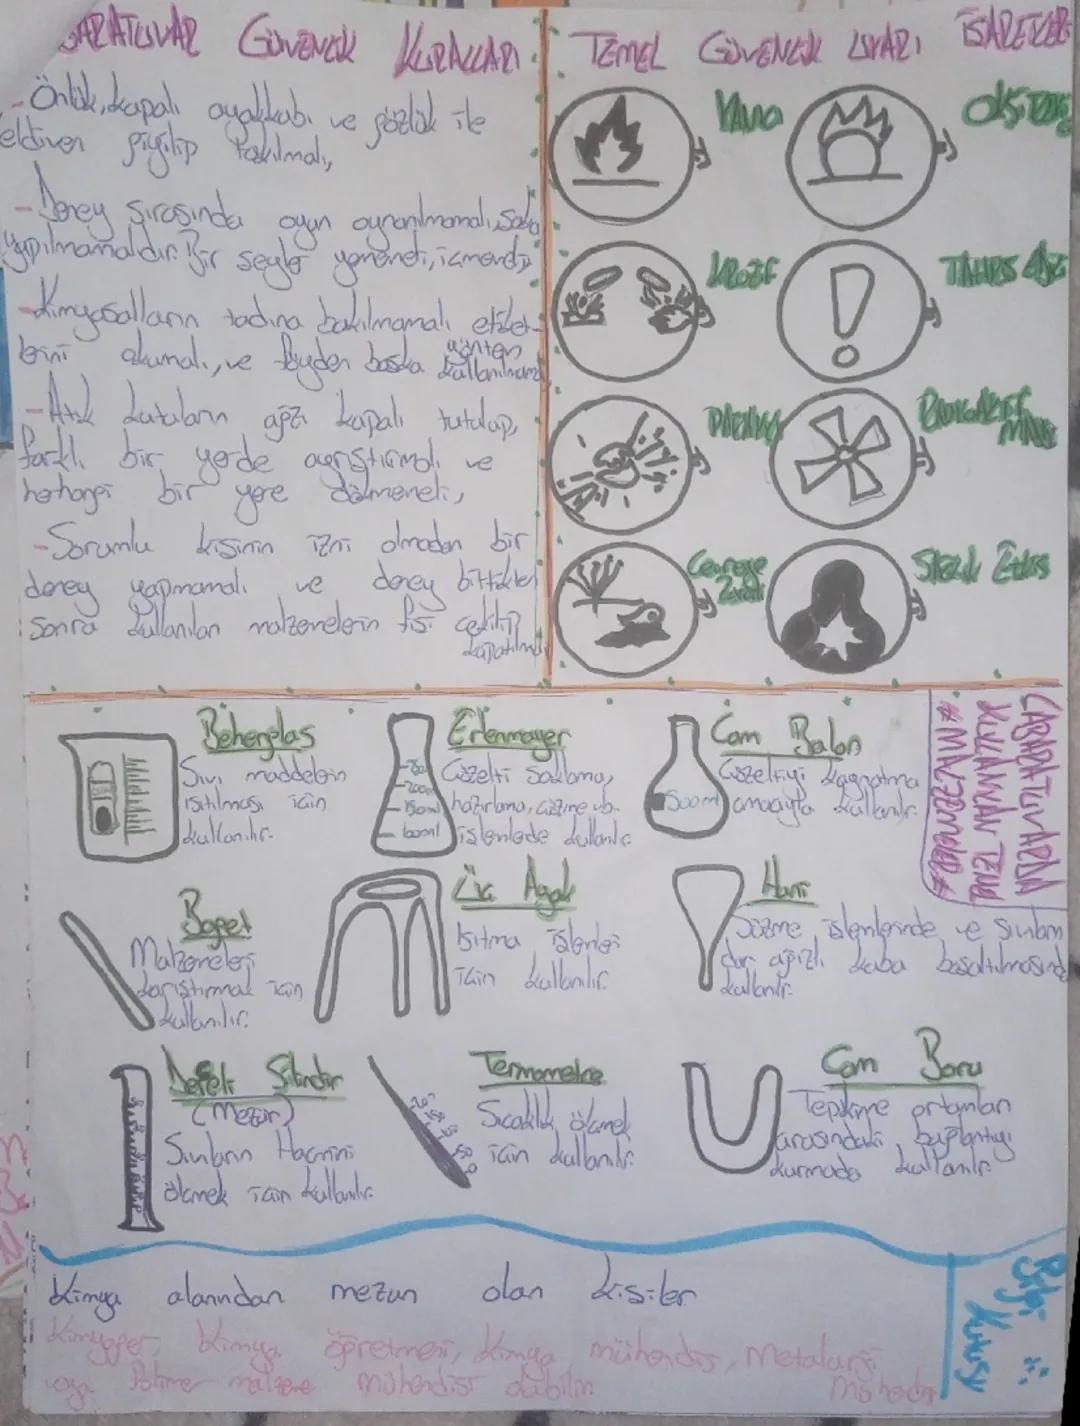 LABARATUVAR GÜVENLİK KURALLARI
- Önlük, kapalı ayakkabı ve gözlük ile
eldiven giyilip takılmalı,
- Deney sırasında oyun oynanılmamalı, şaka
yapılmamalıdır. Bir şeyler yememeli, içmemeli,
- Kimyasalların tadına bakılmamalı etiket-
lerini okumalı, ve başka yönten
kullanılmamalı
- Atık kutuların ağzı kapalı tutulup,
farklı bir yerde ayrıştırmalı ve
herhangi bir yere dökmemeli,
- Sorumlu kişinin izni olmadan bir
deney yapmamalı ve deney bittikten
sonra kullanılan malzemelerin fişi çekilip
kapatılmalı
TEMEL GÜVENLİK UYARI İŞARETLERİ
YANICI
OKSİTLEYİCİ
KOROZİF
TAHRİŞ EDİCİ
PATLAYICI
RADYOAKTİF
MADDE
Çevreye
Zararlı
Sağlık Etkisi
LABARATUVARDA
KULLANILAN TEMEL
# MALZEMELER #
Beherglas
Sıvı maddelerin
ısıtılması için
kullanılır.
Erlenmayer
Çözelti saklama,
hazırlama, çözme vb.
işlemlerde kullanılır.
250ml
200ml
150ml
100ml
Cam Balon
Çözeltiyi kaynatma
amacıyla kullanılır.
500ml
Baget
Malzemeleri
karıştırmak için
kullanılır.
Üç Ayak
Isıtma işlemleri
için kullanılır.
Huni
Süzme işlemlerinde ve sıvıların
dar ağızlı kaba boşaltılmasında
kullanılır.
Dereceli Silindir
(Mezür)
Sıvıların Hacmini
ölçmek için kullanılır.
Termometre
Sıcaklık ölçmek
için kullanılır.
Cam Boru
Tepkime ortamları
arasındaki bağlantıyı
kurmada kullanılır.
Kimya alanından mezun olan kişiler
Kimyager, kimya öğretmeni, kimya mühendisi, metalurji
veya Polimer malzeme mühendisi olabilir.
Mühendisi
Bilgi
Kutusu